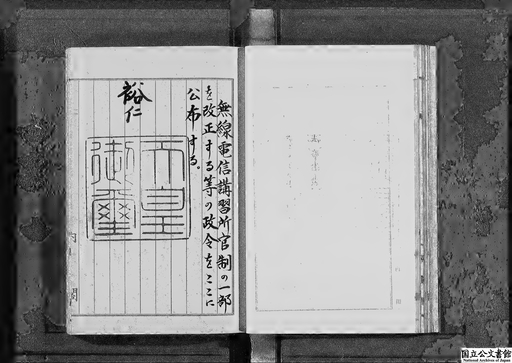 無線電信講習所官制の一部
を改正する等の政令をここに
公布する。
裕仁
天皇
御璽
内閣
国立公文書館
National Archives of Japan